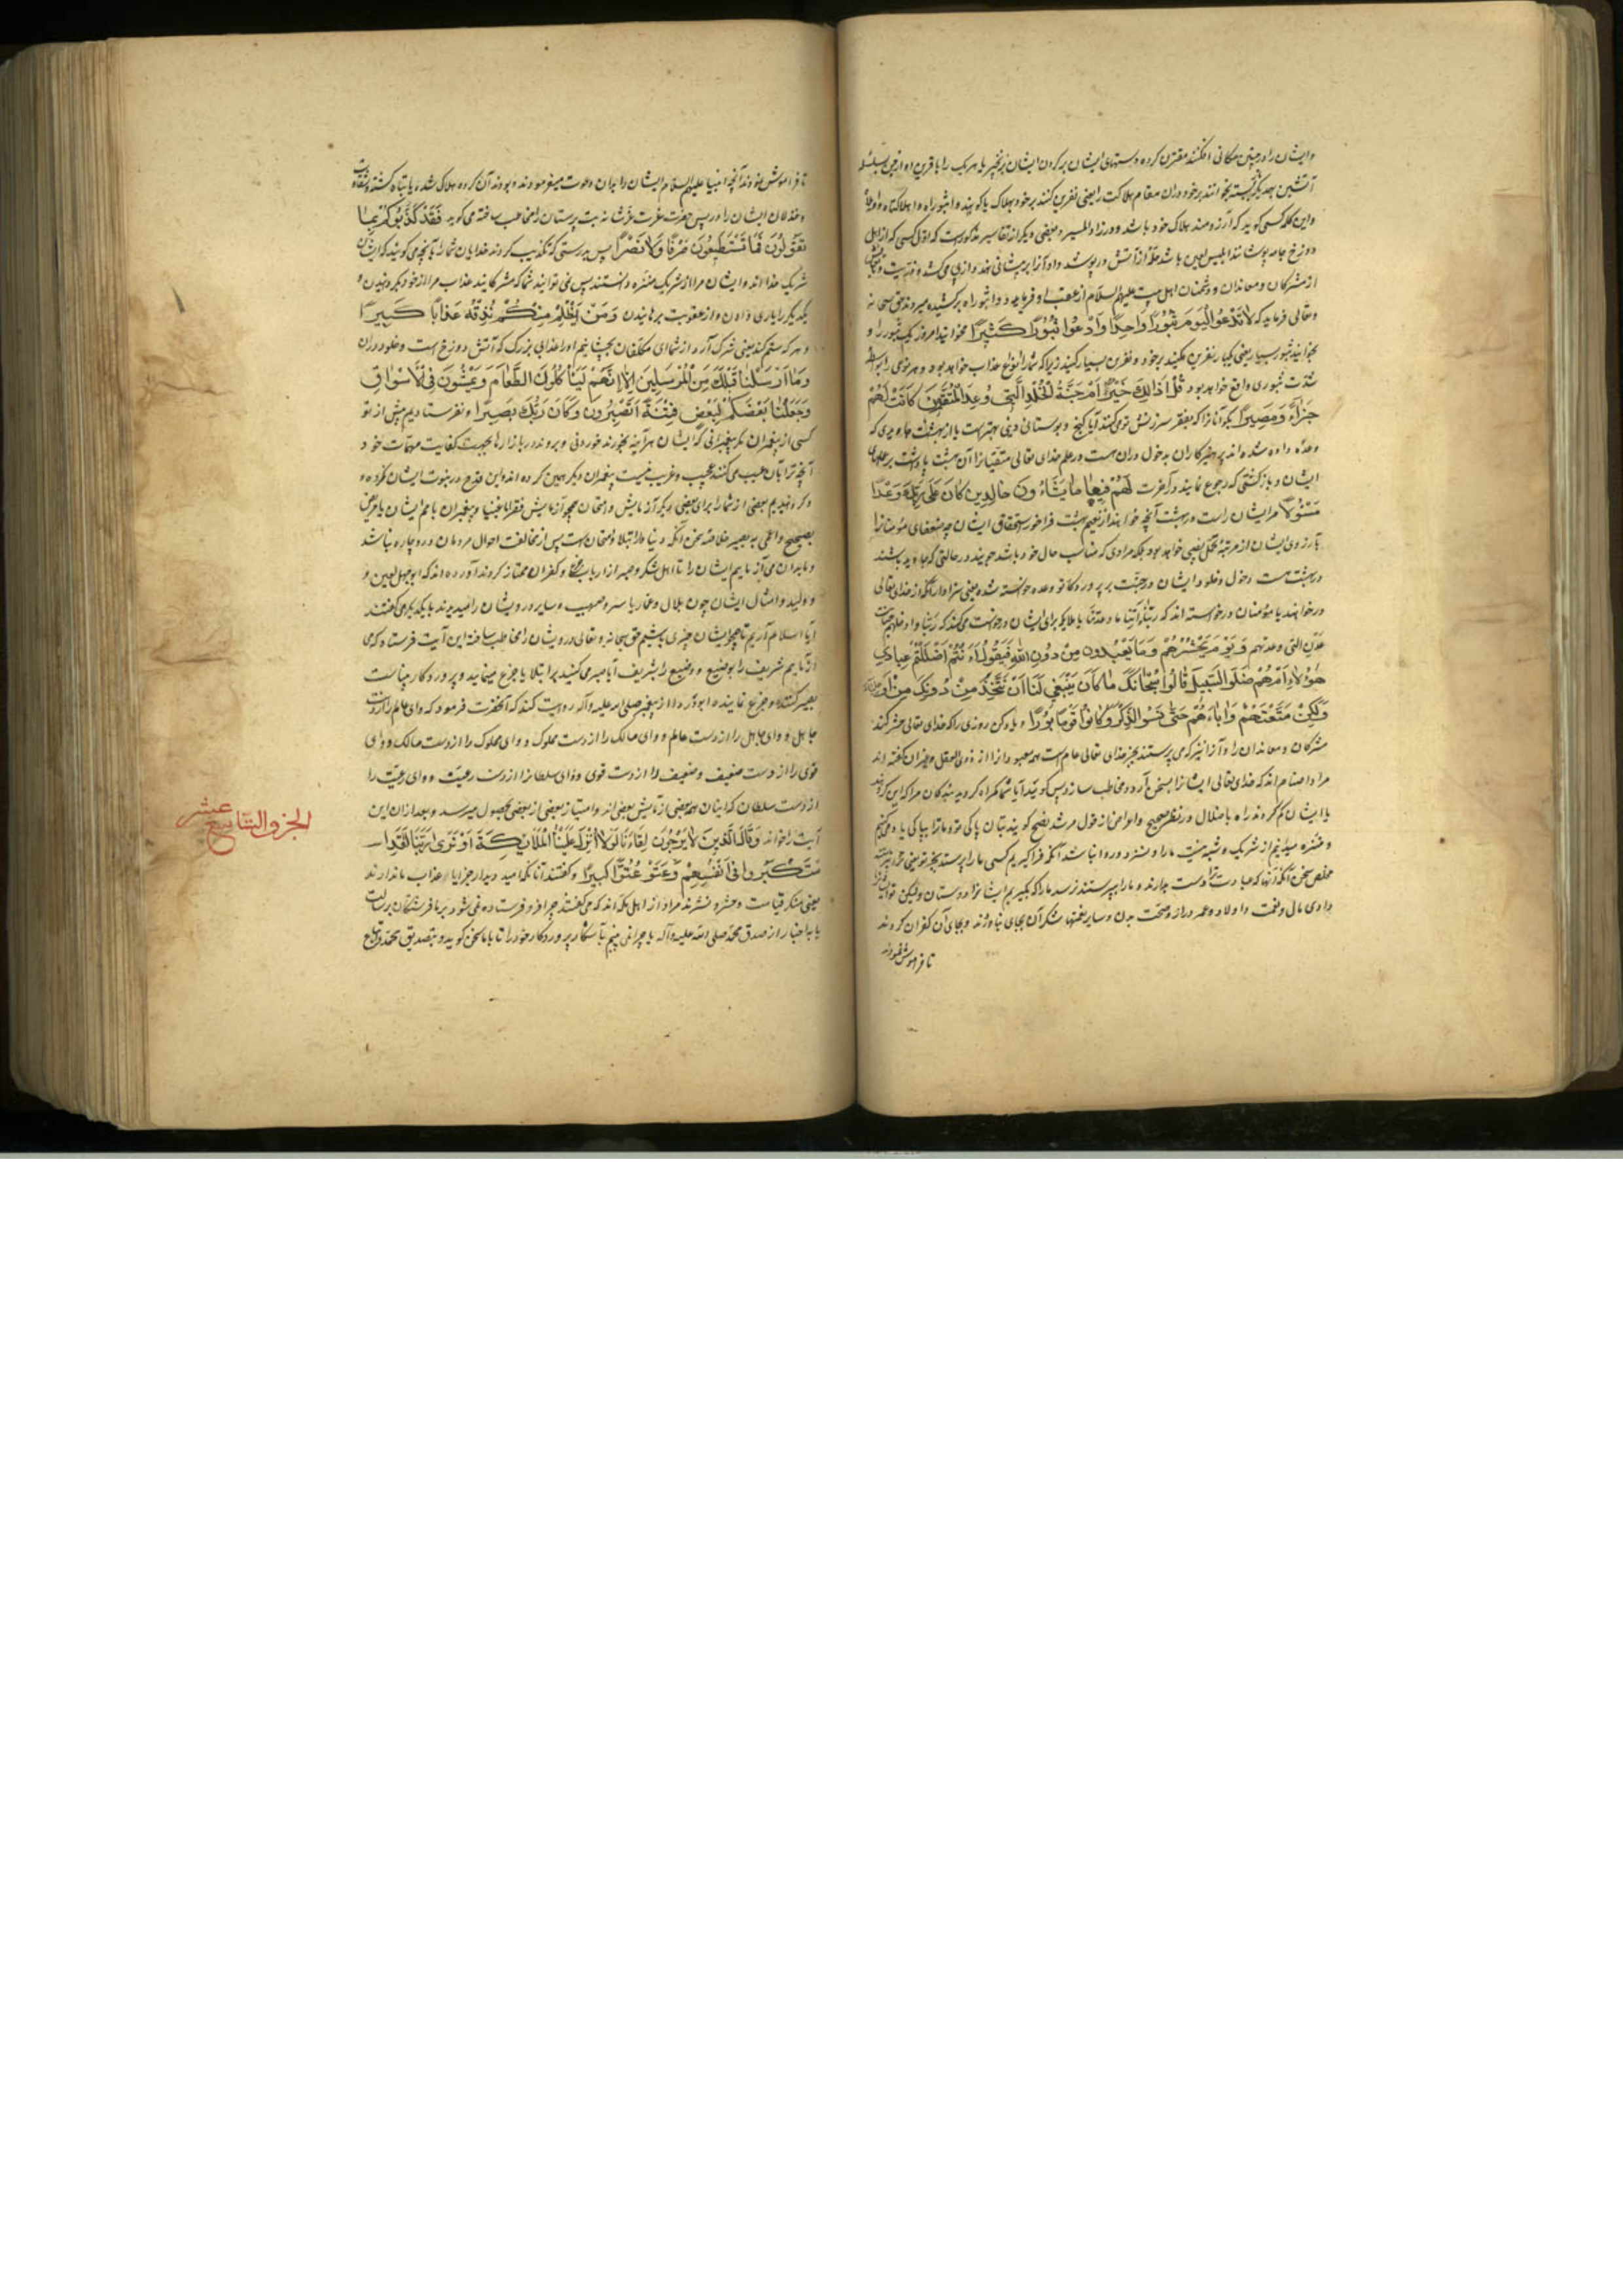 وایشان را در چنین مکانی افکنند مقترن کرده دستهای ایشان بر گردن ایشان بزنجیر یا هریک را با قرین او از جن بسلسله
آتشین بهمدیگر بسته بخوانند بر خود در آن مقام هلاکت را یعنی نفرین کنند بر خود بهلاک یا گویند واثبوراه واهلاکاه
واین کلمه کسی گوید که آرزومند هلاک خود باشد و در زاد المسیر و بعضی دیگر از تفاسیر مذکورست که اول کسی که از اهل
دوزخ جامه پوشانند ابلیس لعین باشد حله از آتش درپوشد و او آنرا بر پیشانی نهد و از پی می کشد و ذریت
از مشرکان و معاندان و دشمنان اهل بیت علیهم السلام از عقب او فریاد و واثبوراه برکشیده میروند حق سبحانه
وتعالی فرماید که لَا تَدْعُوا الْيَوْمَ ثُبُورًا وَاحِدًا وَادْعُوا ثُبُورًا كَثِيرًا مخوانید امروز یک ثبور را و
بخوانید ثبور بسیار یعنی یکبار نفرین مکنید بر خود و نفرین بسیار کنید زیرا که شما را انواع عذاب خواهد بود و هر نوعی را بواسطه
شدت ثبوری واقع خواهد بود قُلْ أَذَٰلِكَ خَيْرٌ أَمْ جَنَّةُ الْخُلْدِ الَّتِي وُعِدَ الْمُتَّقُونَ كَانَتْ لَهُمْ
جَزَاءً وَمَصِيرًا بگو آنانرا که بفقر سرزنش تو می کنند آیا گنج و بوستانی دنیی بهترست یا از بهشت جاویدی که
وعده داده شده اند پرهیزکاران به خول دران هست در علم خدای تعالی متقیانرا آن بهشت پاداشت بر عملهای
ایشان و بازگشتی که رجوع نمایند در آخرت لَهُمْ فِيهَا مَا يَشَاءُونَ خَالِدِينَ كَانَ عَلَىٰ رَبِّكَ وَعْدًا
مَسْئُولًا مر ایشان راست در بهشت آنچه خواهند از نعیم بهشت فراخور استحقاق ایشان چه ضعفای مؤمنانرا
آرزوی ایشان از مرتبه کمل نصیبی نخواهد بود بلکه مرادی که مناسب حال خود باشد جویند در حالتی که جاوید باشند
در بهشت هست دخول و خلود ایشان در جنت بر پروردگار تو وعده خواسته شده یعنی سزاوار آنکه از خدای تعالی
درخواهند یا مؤمنان درخواسته اند که ربنا و آتنا ما وعدتنا یا ملایکه برای ایشان درخواست می کنند که ربنا وادخلهم جنات
عدن التی وعدتهم وَيَوْمَ يَحْشُرُهُمْ وَمَا يَعْبُدُونَ مِنْ دُونِ اللَّهِ فَيَقُولُ أَأَنْتُمْ أَضْلَلْتُمْ عِبَادِي
هَٰؤُلَاءِ أَمْ هُمْ ضَلُّوا السَّبِيلَ قَالُوا سُبْحَانَكَ مَا كَانَ يَنْبَغِي لَنَا أَنْ نَتَّخِذَ مِنْ دُونِكَ مِنْ أَوْلِيَاءَ
وَلَٰكِنْ مَتَّعْتَهُمْ وَآبَاءَهُمْ حَتَّىٰ نَسُوا الذِّكْرَ وَكَانُوا قَوْمًا بُورًا و یاد کن روزی را که خدای تعالی حشر کند
مشرکان و معاندان را و آنرا نیز که می پرستند بجز خدای تعالی عام است همه معبودانرا از ذوی العقل و غیر آن گفته اند
مراد اصنام اند که خدای تعالی ایشانرا بسخن آرد و مخاطب سازد پس گوید آیا شما گمراه کردید بندگان مرا که این گروهند
یا ایشان گم کردند راه باخلال در نظر صحیح و اعراض از قول مرشد نصیح گویند بتان پاکی تو ما ترا بپاکی یاد می کنیم
و منزه میدانیم از شریک و شبیه نیست ما را و نسزد و روا نباشد آنکه فرا گیریم کسی ما را پرستد بجز تو یعنی
مخلص سخن آنکه آنها که عبادت ترا دوست ندارند و ما را پرستند نرسد ما را که بگیریم ایشانرا دوستان ولیکن تو
دادی مال و نعمت و اولاد و عمر دراز و صحت بدن و سایر نعمتها شکر آن بجای نیاوردند و بجای آن کفران کردند
تا فراموش نمودند
تا فراموش نمودند آنچه انبیا علیهم السلام ایشان را بدان دعوت میفرمودند و بودند آن گروه هلاک شده یا تباه گشته
وخذلان ایشان را دریس حضرت عزت عزشانه بت پرستان را مخاطب ساخته می گوید فَقَدْ كَذَّبُوكُمْ بِمَا
تَقُولُونَ فَمَا تَسْتَطِيعُونَ صَرْفًا وَلَا نَصْرًا پس بدرستی که تکذیب کردند خدایان شما را بآنچه می گویید که ایشان
شریک خدااند و ایشان مرا از شریک منزه دانستند پس نمی توانید شما که مشرکانید عذاب مرا از خود بگردانیدن و
یکدیگر را یاری دادن و از عقوبت برهانیدن وَمَنْ يَظْلِمْ مِنْكُمْ نُذِقْهُ عَذَابًا كَبِيرًا
و هر که ستم کند یعنی شرک آرد از شما ای مکلفان بچشانیم او را عذابی بزرگ که آتش دوزخ است و خلود دران
وَمَا أَرْسَلْنَا قَبْلَكَ مِنَ الْمُرْسَلِينَ إِلَّا إِنَّهُمْ لَيَأْكُلُونَ الطَّعَامَ وَيَمْشُونَ فِي الْأَسْوَاقِ
وَجَعَلْنَا بَعْضَكُمْ لِبَعْضٍ فِتْنَةً أَتَصْبِرُونَ وَكَانَ رَبُّكَ بَصِيرًا و نفرستادیم پیش از تو
کسی از پیغمبران مگر پیغمبرانی که ایشان هرآینه بخورند خوردنی و بروند در بازارها بجهت کفایت مهمات خود
آنچه ترا بآن عیب می کنند عجیب و غریب نیست پیغمبران دیگر همین کرده اند و این قدح در نبوت ایشان نکرده
و گردانیدیم بعضی از شما را برای بعضی دیگر آزمایش و امتحان همچو آزمایش فقرا باغنیا و پیغمبران با امم ایشان یا مریض
بصحیح و اعمی به بصیر خلاصه سخن آنکه دنیا دار ابتلا و امتحان است پس از مخالفت احوال مردمان درو چاره نباشد
و ما بدان می آزماییم ایشان را تا اهل شکر و صبر از ارباب و کفران ممتاز کردند آورده اند که ابوجهل لعین و
و ولید و امثال ایشان چون بلال و عمار یاسر و صهیب و سایر درویشان را میدیدند با یکدیگر می گفتند
آیا اسلام آریم تا همچو ایشان چیزی باشیم حق سبحانه و تعالی درویشان را مخاطب ساخته این آیت فرستاد که می
آزماییم شریف را بوضیع و وضیع را بشریف آیا صبر می کنید بر ابتلا یا جزع مینمایید و پروردگار بیناست
بصبر کننده و جزع نماینده ابو از پیغمبر صلی الله علیه وآله روایت کند که آنحضرت فرمود که وای عالم را از دست
جاهل و وای جاهل را از دست عالم و وای مالک را از دست مملوک و وای مملوک را از دست مالک و وای
قوی را از دست ضعیف و ضعیف را از دست قوی و وای سلطانرا از دست رعیت و وای رعیت را
از دست سلطان که اینان همه بعضی آزمایش بعضی اند و امتیاز بعضی از بعضی بحصول میرسد و بعد از آن این
آیت را خواند وَقَالَ الَّذِينَ لَا يَرْجُونَ لِقَاءَنَا لَوْلَا أُنْزِلَ عَلَيْنَا الْمَلَائِكَةُ أَوْ نَرَىٰ رَبَّنَا لَقَدِ
اسْتَكْبَرُوا فِي أَنْفُسِهِمْ وَعَتَوْا عُتُوًّا كَبِيرًا و گفتند آنانکه امید دیدار جزا یا عذاب ما ندارند
یعنی منکر قیامت و حشر و نشرند مراد از اهل مکه اند که می گفتند چرا فرو فرستاده نمی شود بر ما فرشتگان برسالت
یا به اخبار از صدق محمد صلی الله علیه وآله یا چرا نمی بینیم آشکار پروردگار خود را تا با ما سخن گوید و بتصدیق محمد و
الجزو التاسع عشر